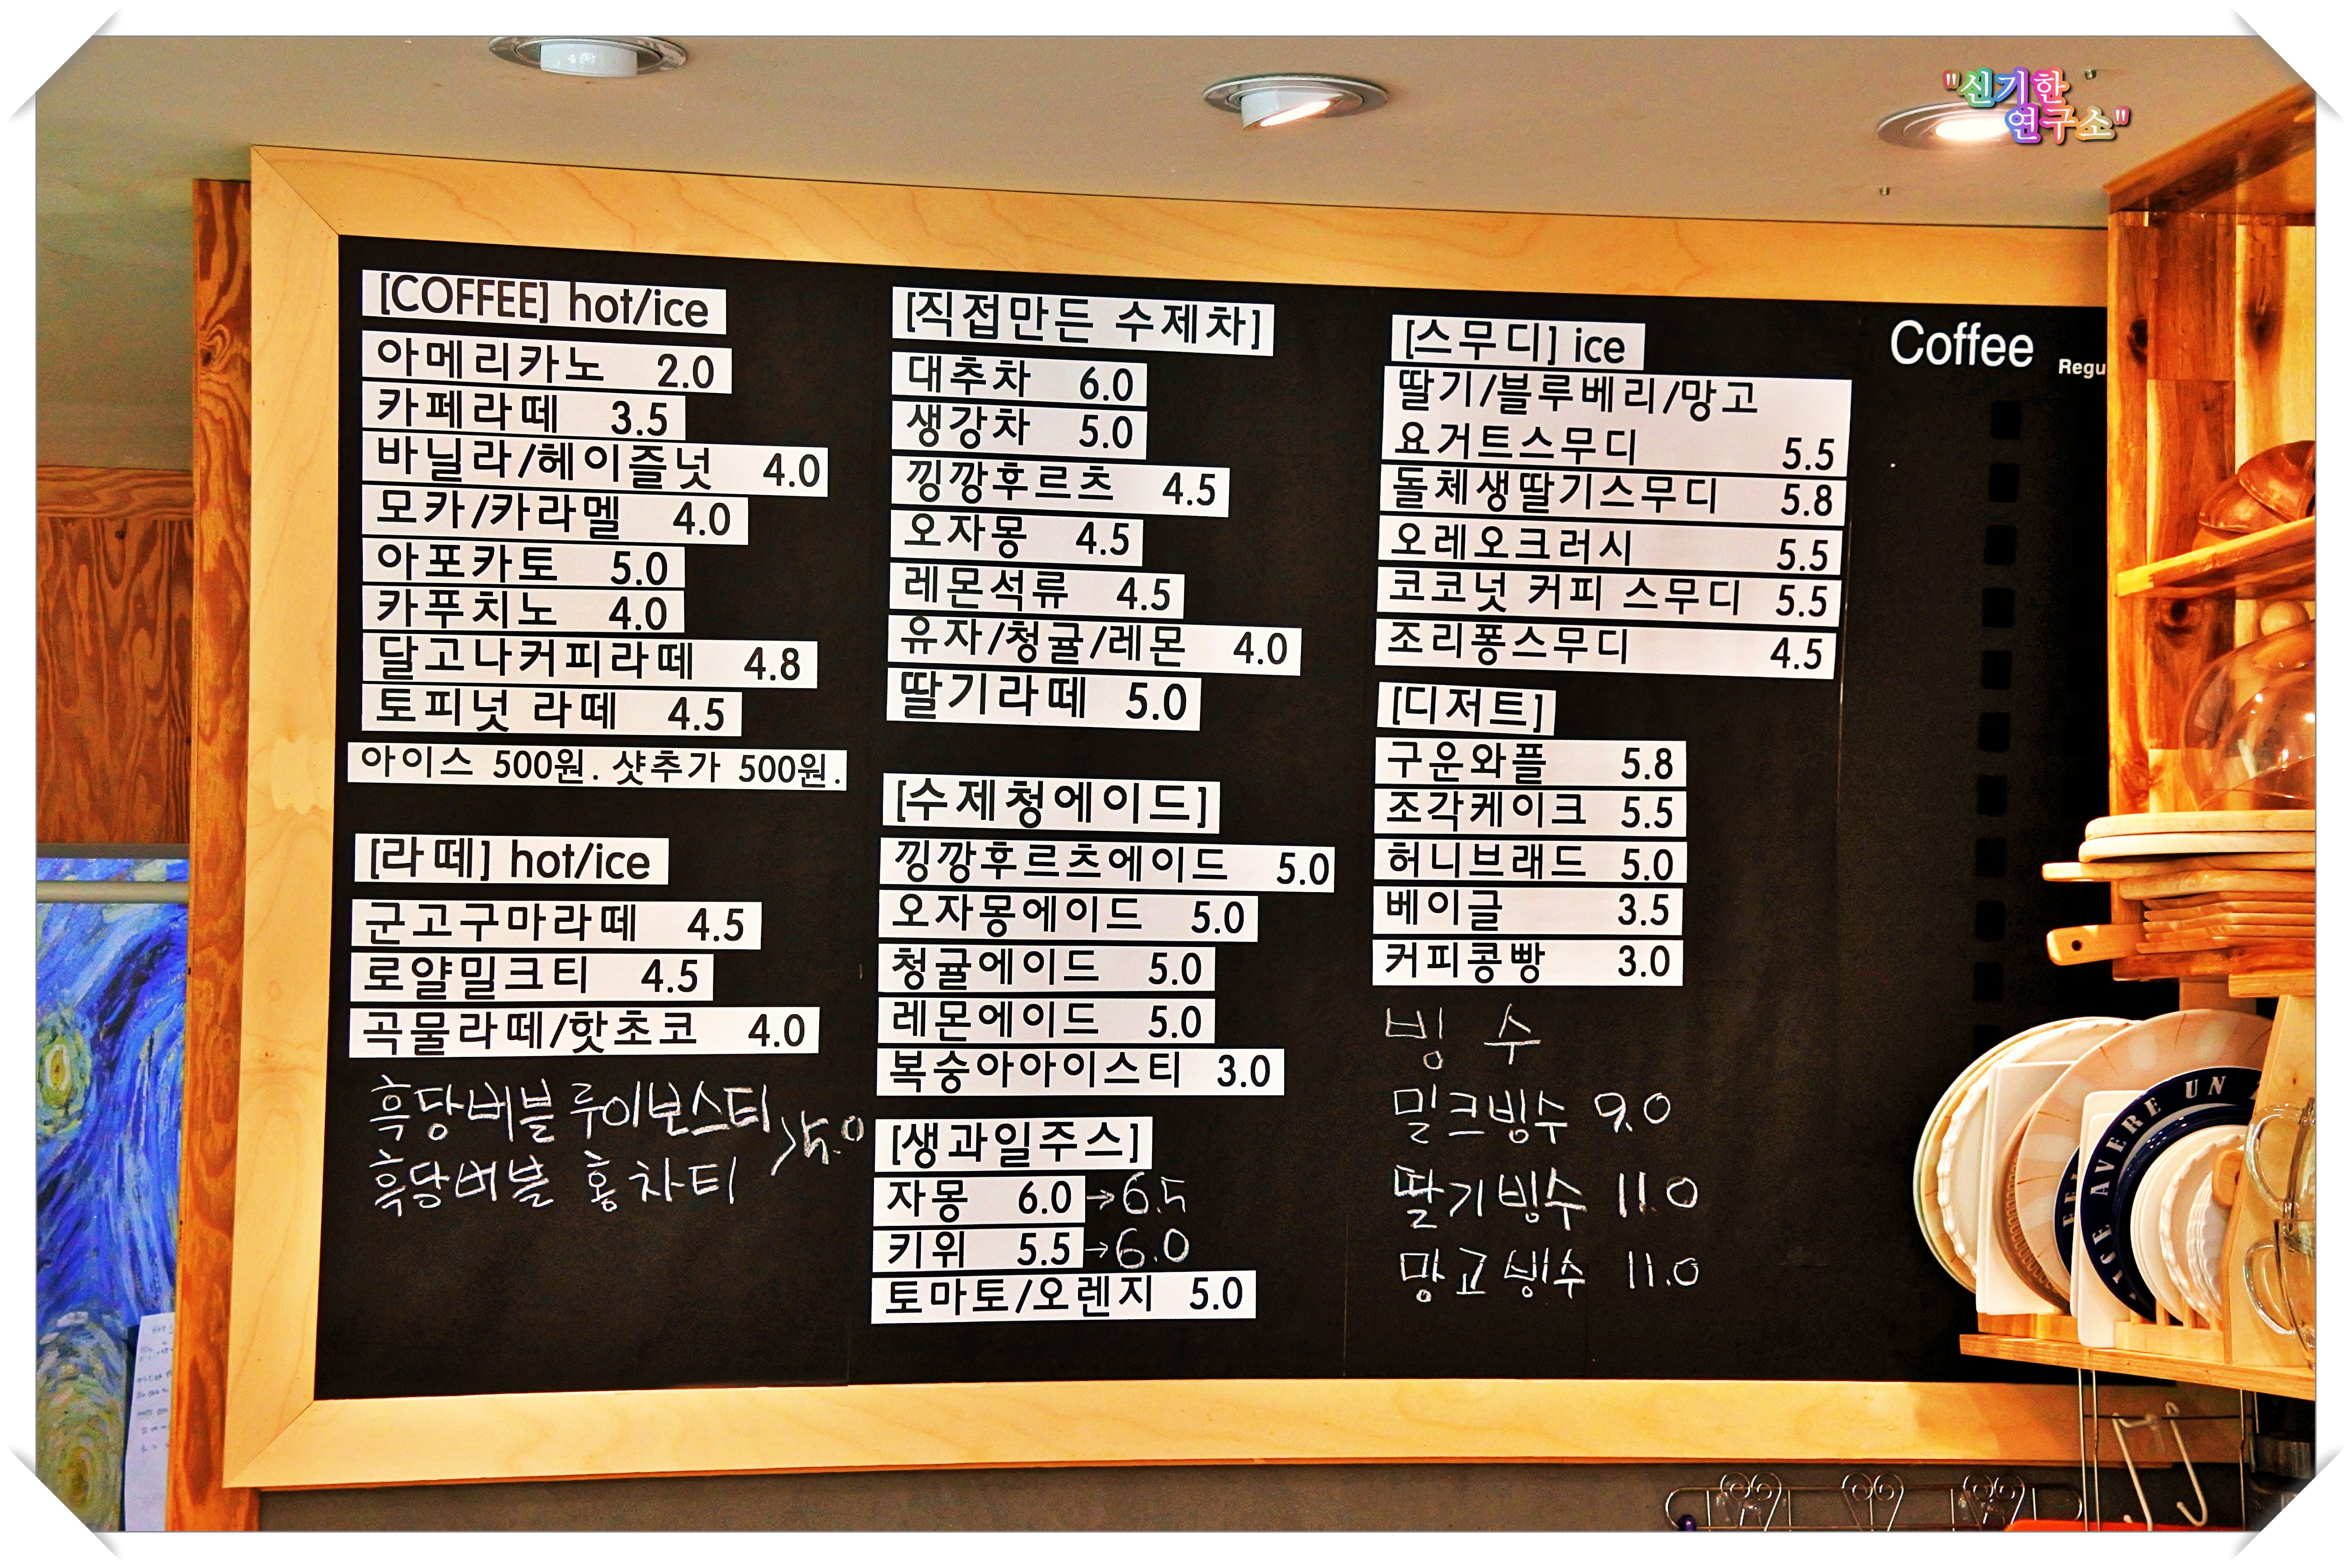 "신기한
연구소"
[COFFEE] hot/ice
아메리카노 2.0
카페라떼 3.5
바닐라/헤이즐넛 4.0
모카/카라멜 4.0
아포카토 5.0
카푸치노 4.0
달고나커피라떼 4.8
토피넛 라떼 4.5
아이스 500원. 샷추가 500원.
[라떼] hot/ice
군고구마라떼 4.5
로얄밀크티 4.5
곡물라떼/핫초코 4.0
흑당버블 루이보스티
흑당버블 홍차티 >5.0
[직접만든 수제차]
대추차 6.0
생강차 5.0
낑깡후르츠 4.5
오자몽 4.5
레몬석류 4.5
유자/청귤/레몬 4.0
딸기라떼 5.0
[수제청에이드]
낑깡후르츠에이드 5.0
오자몽에이드 5.0
청귤에이드 5.0
레몬에이드 5.0
복숭아아이스티 3.0
[생과일주스]
자몽 6.0 →6.5
키위 5.5 →6.0
토마토/오렌지 5.0
[스무디] ice
딸기/블루베리/망고
요거트스무디 5.5
돌체생딸기스무디 5.8
오레오크러시 5.5
코코넛 커피 스무디 5.5
조리퐁스무디 4.5
[디저트]
구운와플 5.8
조각케이크 5.5
허니브래드 5.0
베이글 3.5
커피콩빵 3.0
빙 수
밀크빙수 9.0
딸기빙수 11.0
망고빙수 11.0
Coffee Regu
ICE AVERE UN